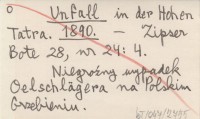 O Unfall in der Hohen
Tatra. 1890. — Zipser
Bote 28, nr 24: 4.
Niegroźny wypadek
Oelschlägera na Polskim
Grzebieniu.